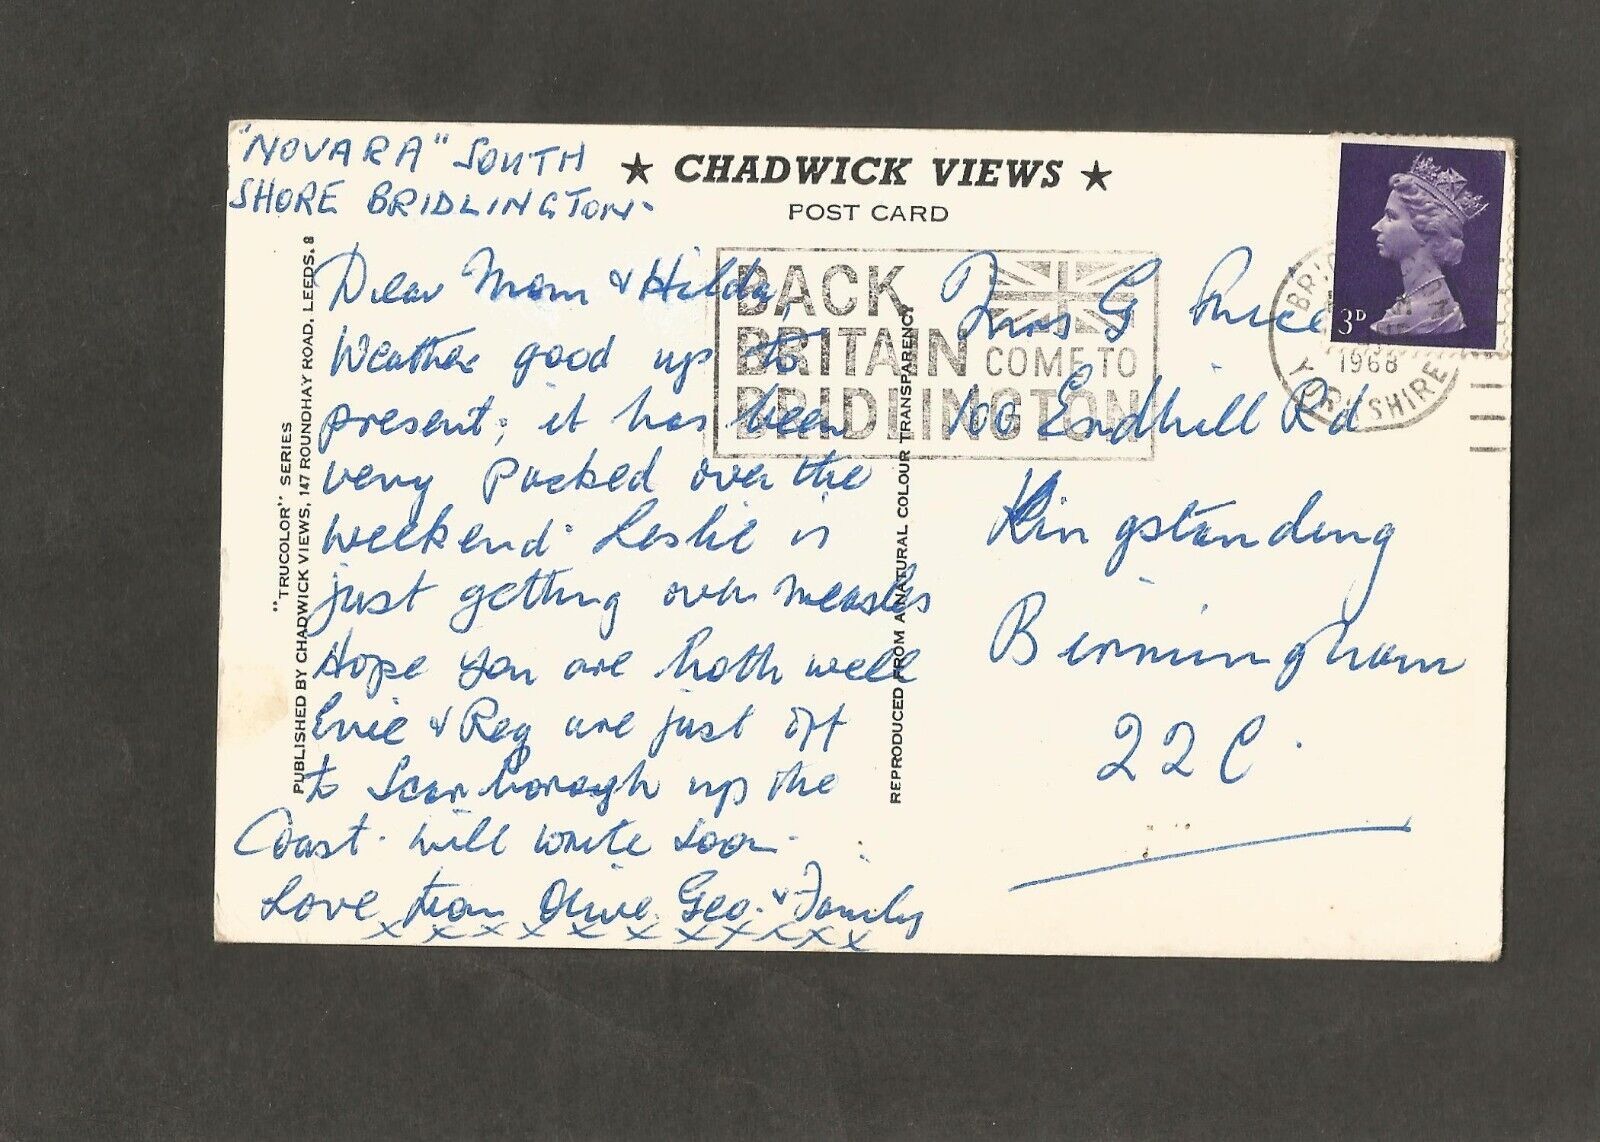 "NOVARA" SOUTH
SHORE BRIDLINGTON-
★ CHADWICK VIEWS ★
POST CARD
Dear Mom & Hilda,
Weather good up to
present; it has been
very packed over the
weekend. Leslie is
just getting over measles
Hope you are both well
Evie & Reg are just off
to Scarborough up the
Coast. Will write soon.
Love from Olive. Geo. & Family
x x x x x x x x x x x
"TRUCOLOR" SERIES
PUBLISHED BY CHADWICK VIEWS, 147 ROUNDHAY ROAD, LEEDS, 8
REPRODUCED FROM A NATURAL COLOUR TRANSPARENCY
BACK
BRITAIN
COME TO
BRIDLINGTON
3D
1968
YORKSHIRE
Mrs G Price
100 Endhill Rd
Kingstanding
Birmingham
22C.